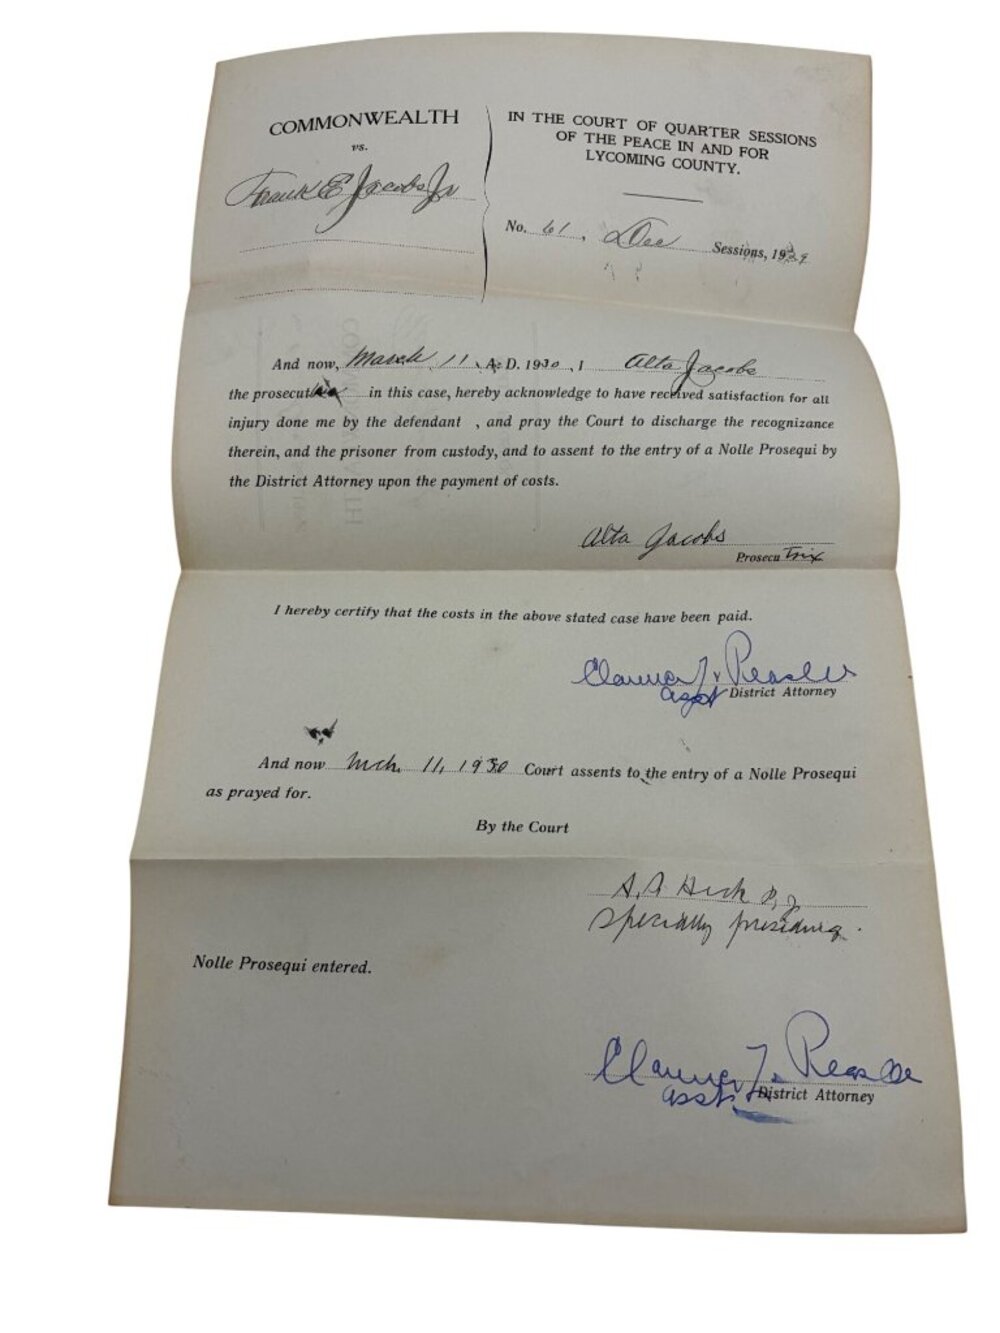 COMMONWEALTH
vs.
Frank E Jacobs Jr
IN THE COURT OF QUARTER SESSIONS
OF THE PEACE IN AND FOR
LYCOMING COUNTY.
No. 61, Dec Sessions, 1929
And now, March 11, A. D. 1930, I Alta Jacobs
the prosecutrix in this case, hereby acknowledge to have received satisfaction for all
injury done me by the defendant , and pray the Court to discharge the recognizance
therein, and the prisoner from custody, and to assent to the entry of a Nolle Prosequi by
the District Attorney upon the payment of costs.
Alta Jacobs
Prosecutrix
I hereby certify that the costs in the above stated case have been paid.
District Attorney
And now Mch. 11, 1930 Court assents to the entry of a Nolle Prosequi
as prayed for.
By the Court
specially presiding.
Nolle Prosequi entered.
Asst. District Attorney